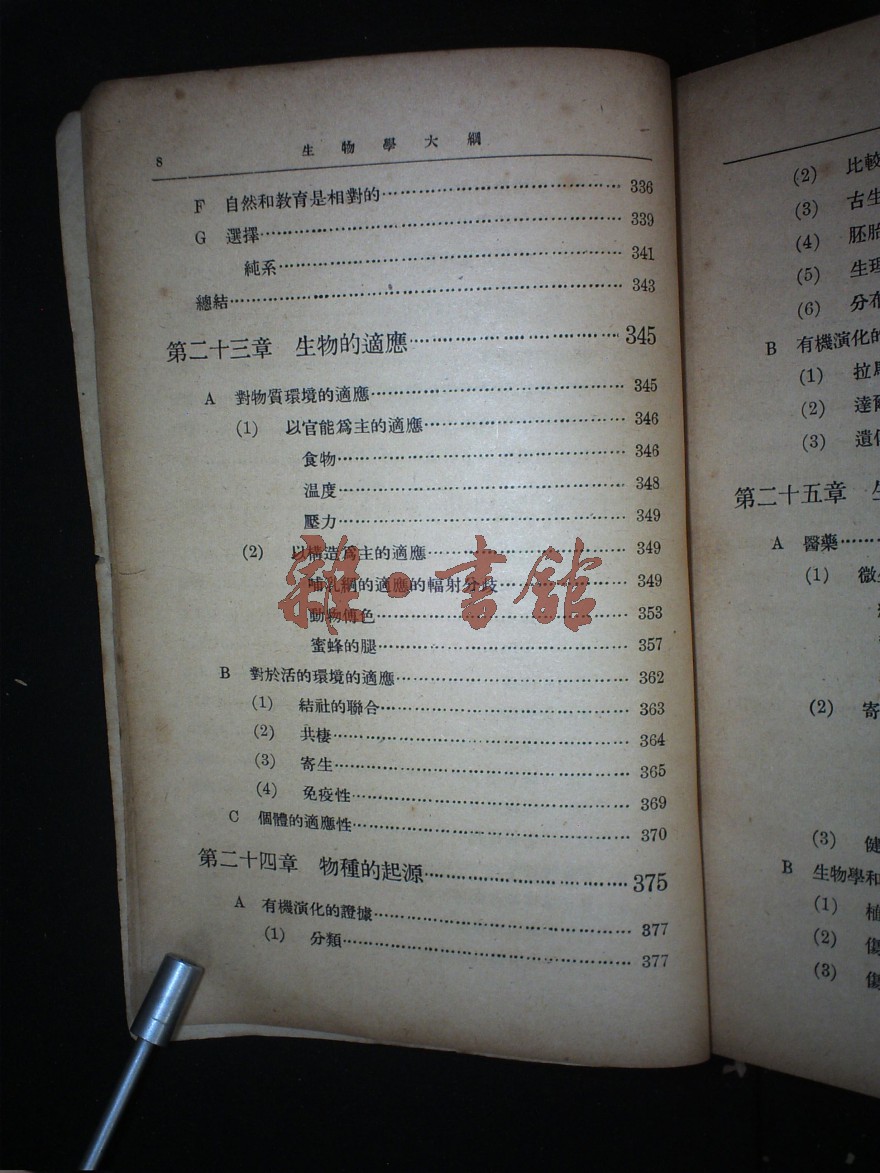 8 生物學大綱
F 自然和教育是相對的 336
G 選擇 339
純系 341
總結 343
第二十三章 生物的適應 345
A 對物質環境的適應 345
(1) 以官能爲主的適應 346
食物 346
溫度 348
壓力 349
(2) 以構造爲主的適應 349
哺乳綱的適應的輻射分歧 349
動物傅色 353
蜜蜂的腿 357
B 對於活的環境的適應 362
(1) 結社的聯合 363
(2) 共棲 364
(3) 寄生 365
(4) 免疫性 369
C 個體的適應性 370
第二十四章 物種的起源 375
A 有機演化的證據 377
(1) 分類 377
雜·書館
(2) 比較
(3) 古生
(4) 胚胎
(5) 生理
(6) 分布
B 有機演化的
(1) 拉馬
(2) 達爾
(3) 遺傳
第二十五章 生
A 醫藥
(1) 微
(2) 寄
(3) 健
B 生物學和
(1) 植
(2) 傷
(3) 傷